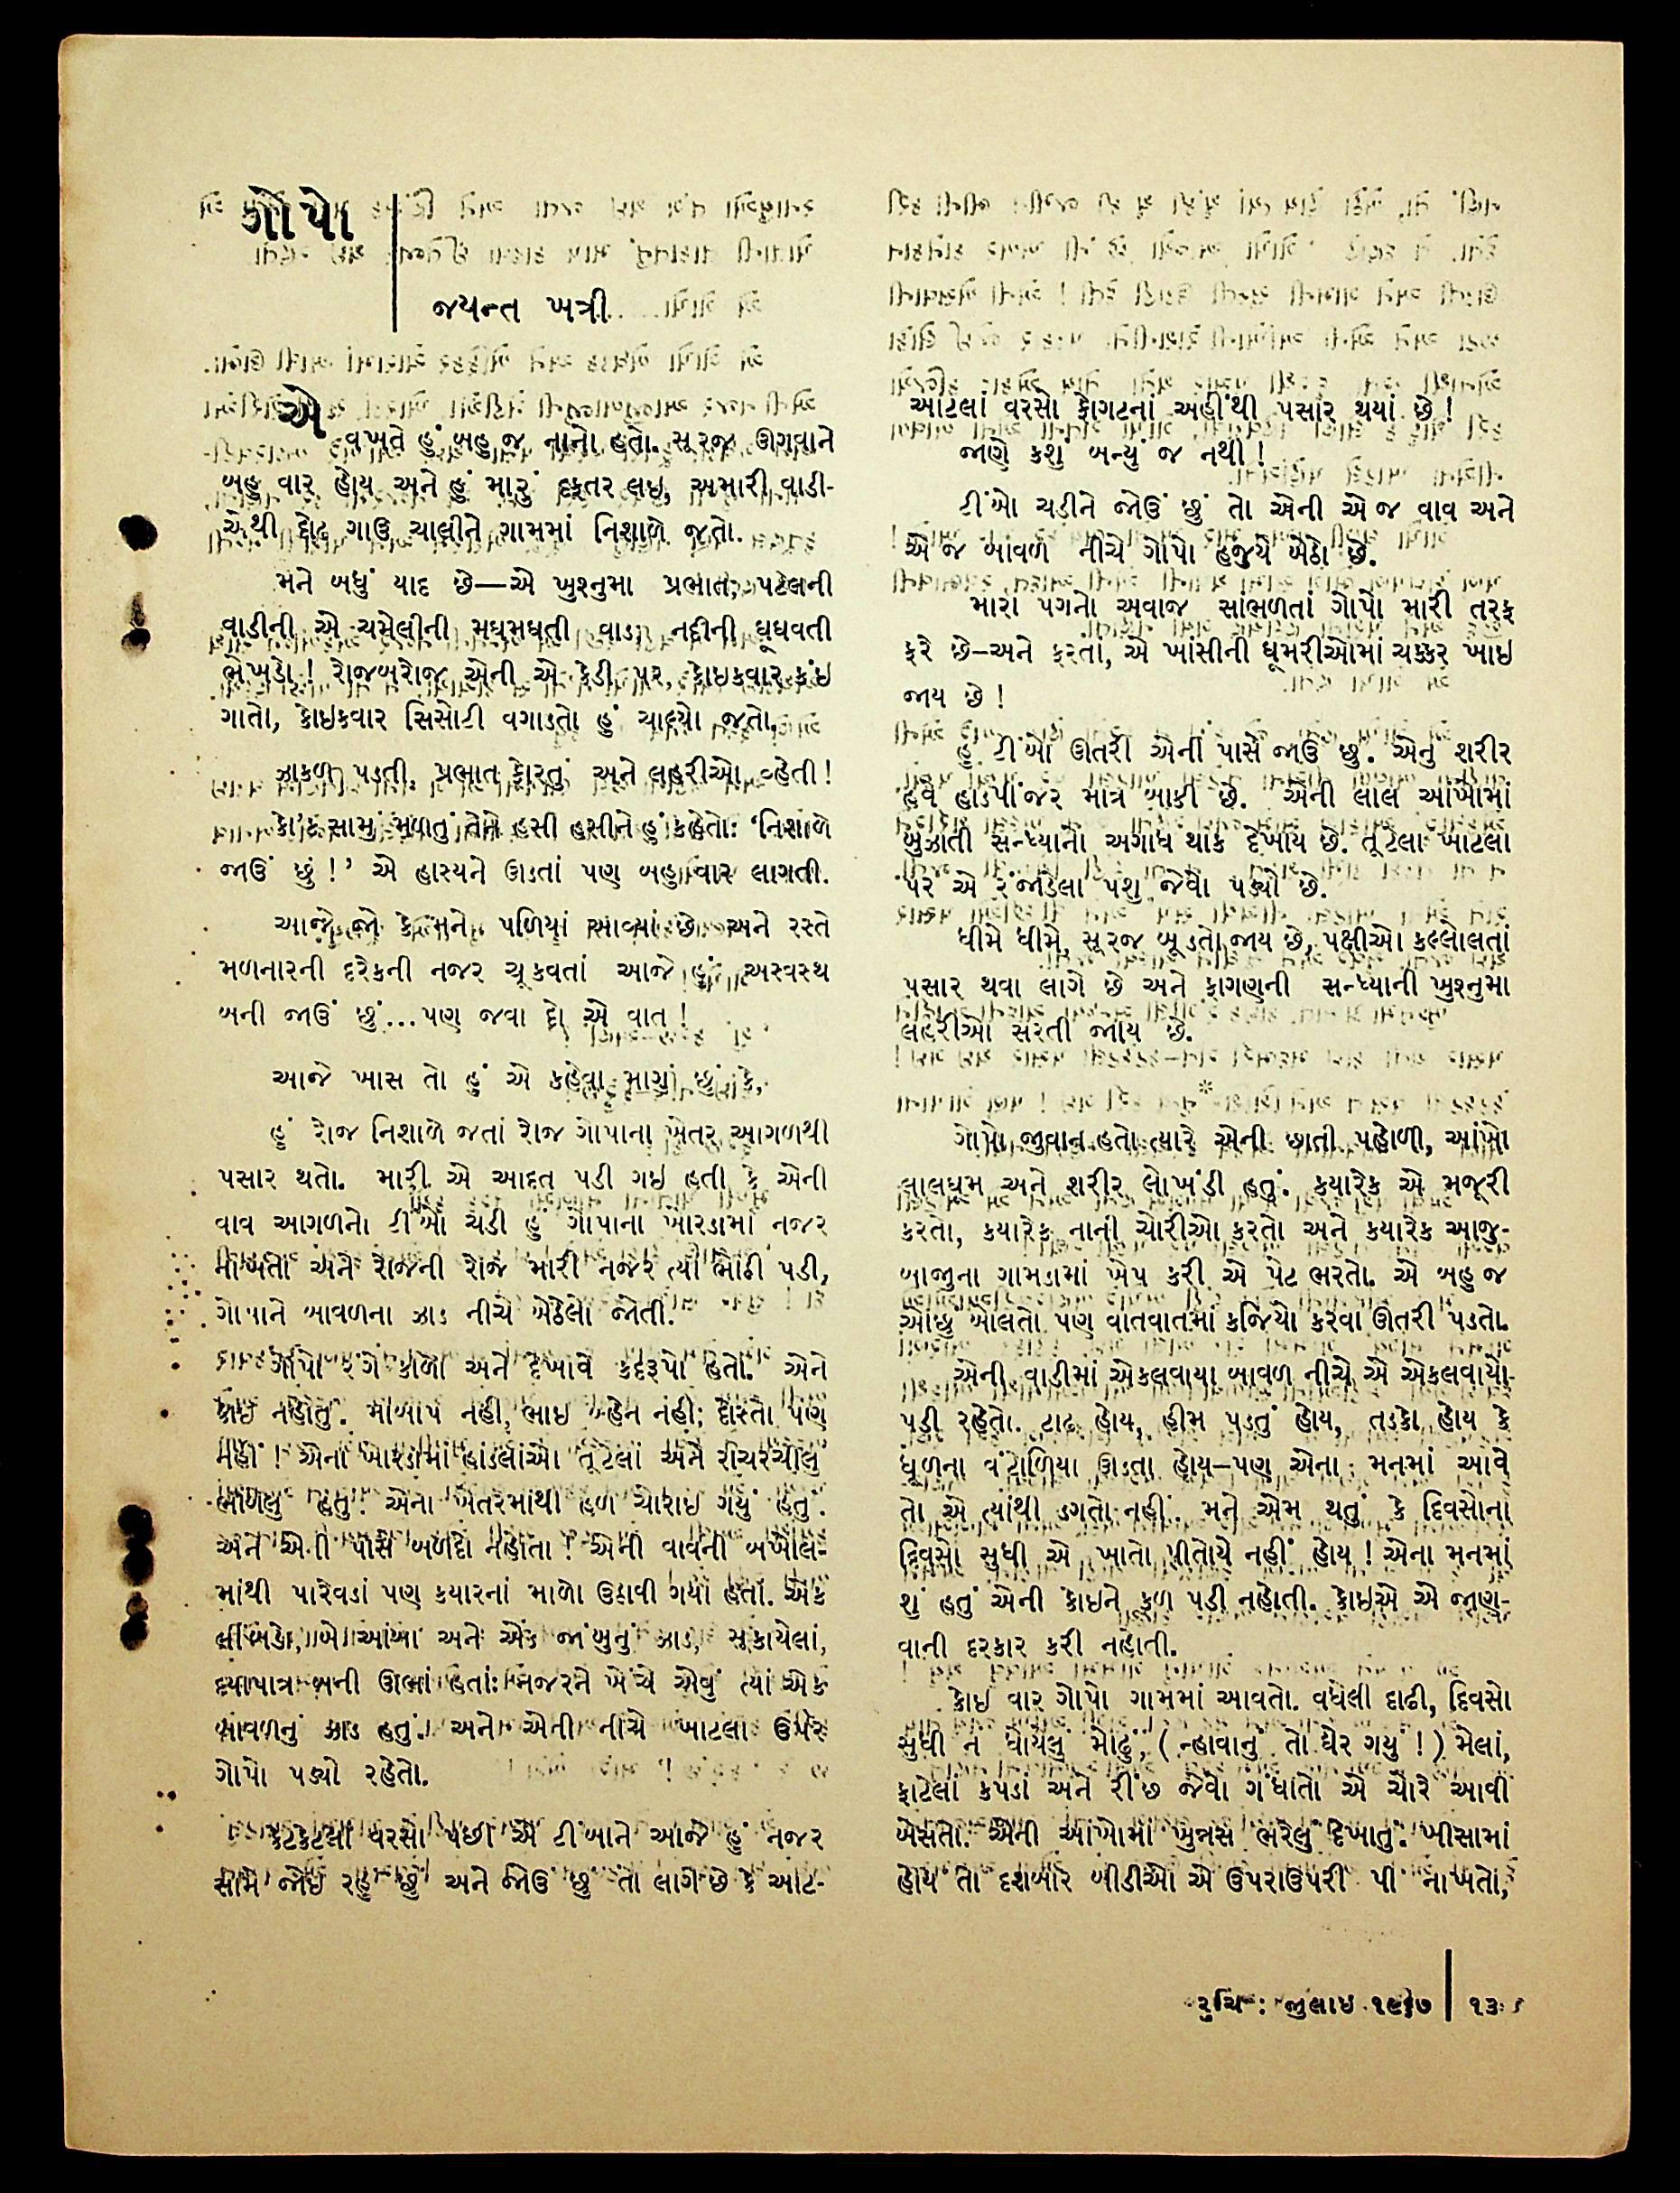 ગોપો
જયન્ત ખત્રી
એ વખતે હું બહુ જ નાનો હતો. સૂરજ ઊગવાને
બહુ વાર હોય અને હું મારું દફતર લઇ, અમારી વાડી-
એથી દોઢ ગાઉ ચાલીને ગામમાં નિશાળે જતો.
મને બધું યાદ છે—એ ખુશ્નુમા પ્રભાત, પટેલની
વાડીની એ ચમેલીની મઘમઘતી વાડ, નદીની ઘૂઘવતી
ભેખડો! રોજબરોજ એની એ કેડી પર, કોઇકવાર કંઇ
ગાતો, કોઇકવાર સિસોટી વગાડતો હું ચાલ્યો જતો.
ઝાકળ પડતી, પ્રભાત ફોરતું અને લહરીઓ વ્હેતી!
કો'ક સામું મળતું તેને હસી હસીને હું કહેતો: ‘નિશાળે
જાઉં છું!’ એ હાસ્યને ઊડતાં પણ બહુ વાર લાગતી.
આજે જો કે મને પળિયાં આવ્યાં છે અને રસ્તે
મળનારની દરેકની નજર ચૂકવતાં આજે હું અસ્વસ્થ
બની જાઉં છું...પણ જવા દો એ વાત!
આજે ખાસ તો હું એ કહેવા માગું છું કે,
હું રોજ નિશાળે જતાં રોજ ગોપાના ખેતર આગળથી
પસાર થતો. મારી એ આદત પડી ગઇ હતી કે એની
વાવ આગળનો ટીંબો ચડી હું ગોપાના ખોરડામાં નજર
નાખતો અને રોજની રોજ મારી નજર ત્યાં ભોંઠી પડી,
ગોપાને બાવળના ઝાડ નીચે બેઠેલો જોતી.
ગોપો રંગે કાળો અને દેખાવે કદરૂપો હતો. એને
કોઇ નહોતું. માબાપ નહીં, ભાઇ બ્હેન નહીં; દોસ્તો પણ
નહીં! એના ખોરડામાં હાંડલાંઓ તૂટેલાં અને રાચરચીલું
ભાંગેલું હતું. એના ખેતરમાંથી હળ ચોરાઇ ગયું હતું.
અને એની પાસે બળદો નહોતા! એની વાવની બખોલ-
માંથી પારેવડાં પણ કયારનાં માળો ઉઠાવી ગયાં હતાં. એક
લીંબડો, બે આંબા અને એક જાંબુનું ઝાડ, સૂકાયેલાં,
દયાપાત્ર બની ઊભાં હતાં: નજરને ખેંચે એવું ત્યાં એક
બાવળનું ઝાડ હતું. અને એની નીચે ખાટલા ઉપર
ગોપો પડ્યો રહેતો.
કેટકેટલાં વરસો પછી એ ટીંબાને આજે હું નજર
સામે જોઇ રહું છું અને જોઉં છું તો લાગે છે કે આટ-
આટલાં વરસો ફોગટનાં અહીંથી પસાર થયાં છે!
જાણે કશું બન્યું જ નથી!
ટીંબો ચડીને જોઉં છું તો એની એ જ વાવ અને
એ જ બાવળ નીચે ગોપો હજુયે બેઠો છે.
મારા પગનો અવાજ સાંભળતાં ગોપો મારી તરફ
ફરે છે-અને ફરતાં, એ ખાંસીની ઘૂમરીઓમાં ચક્કર ખાઇ
જાય છે!
હું ટીંબો ઊતરી એની પાસે જાઉં છું. એનું શરીર
હવે હાડપીંજર માત્ર બાકી છે. એની લાલ આંખોમાં
બુઝાતી સન્ધ્યાનો અગાધ થાક દેખાય છે. તૂટેલા ખાટલા
પર એ રંજાડેલા પશુ જેવો પડ્યો છે.
ધીમે ધીમે, સૂરજ બૂડતો જાય છે, પક્ષીઓ કલ્લોલતાં
પસાર થવા લાગે છે અને ફાગણની સન્ધ્યાની ખુશ્નુમા
લહરીઓ સરતી જાય છે.
*
ગોપો જુવાન હતો ત્યારે એની છાતી પહોળી, આંખો
લાલઘૂમ અને શરીર લોખંડી હતું. કયારેક એ મજૂરી
કરતો, કયારેક નાની ચોરીઓ કરતો અને કયારેક આજુ-
બાજુના ગામડામાં ખેપ કરી એ પેટ ભરતો. એ બહુ જ
ઓછું બોલતો પણ વાતવાતમાં કજિયો કરવા ઊતરી પડતો.
એની વાડીમાં એકલવાયા બાવળ નીચે એ એકલવાયો
પડી રહેતો. ટાઢ હોય, હીમ પડતું હોય, તડકો હોય કે
ધૂળના વંટોળિયા ઊડતા હોય-પણ એના મનમાં આવે
તો એ ત્યાંથી ડગતો નહીં. મને એમ થતું કે દિવસોના
દિવસો સુધી એ ખાતો પીતોયે નહીં હોય! એના મનમાં
શું હતું એની કોઇને કળ પડી નહોતી. કોઇએ એ જાણ-
વાની દરકાર કરી નહોતી.
કોઇ વાર ગોપો ગામમાં આવતો. વધેલી દાઢી, દિવસો
સુધી ન ધોયેલું મોઢું, (ન્હાવાનું તો ઘેર ગયું!) મેલાં,
ફાટેલાં કપડાં અને રીંછ જેવો ગંધાતો એ ચોરે આવી
બેસતો. એની આંખોમાં ખુન્નસ ભરેલું દેખાતું. ખીસામાં
હોય તો દશબાર બીડીઓ એ ઉપરાઉપરી પી નાખતો,
રુચિ : જુલાઇ ૧૯૬૭ | ૧૩